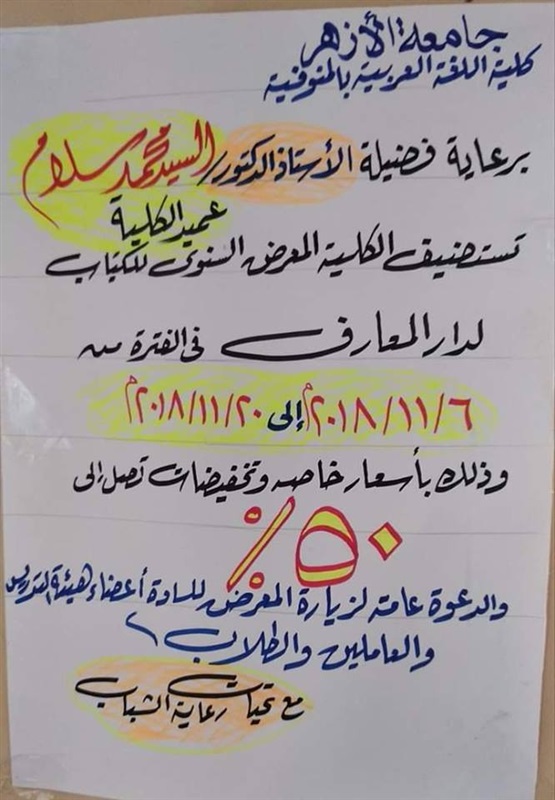 جامعة الأزهر
كلية اللغة العربية بالمنوفية
برعاية فضيلة الأستاذ الدكتور/ السيد محمد سلام
عميد الكلية
تستضيف الكلية المعرض السنوى للكتاب
لدار المعارف فى الفترة من
٢٠١٨/١١/٦م إلى ٢٠١٨/١١/٢٠م
وذلك بأسعار خاصه وتخفيضات تصل إلى
٥٠٪
والدعوة عامه لزيارة المعرض للسادة أعضاء هيئة التدريس
والعاملين والطلاب
مع تحيات
رعاية الشباب